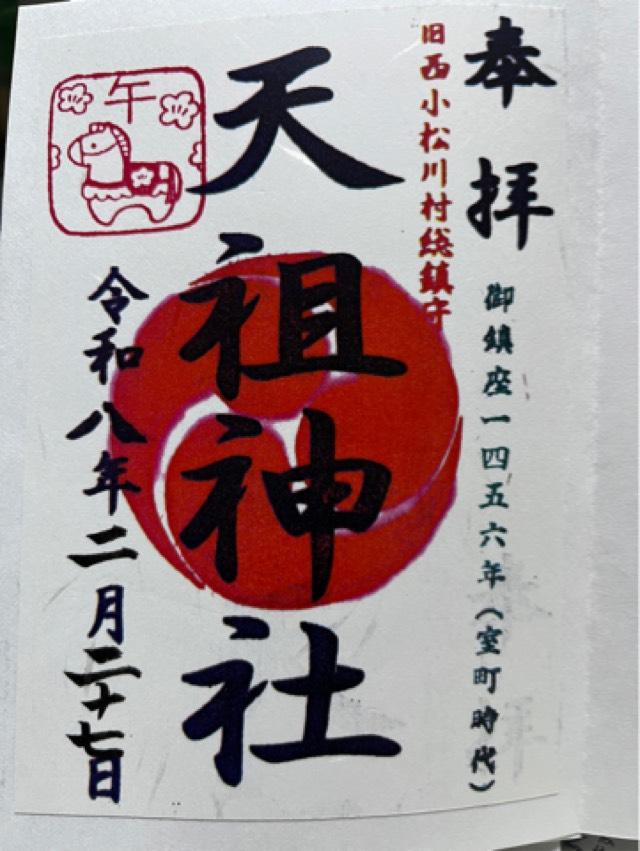 奉拝
御鎮座一四五六年(室町時代)
旧西小松川村総鎮守
天祖神社
午
令和八年二月二十七日